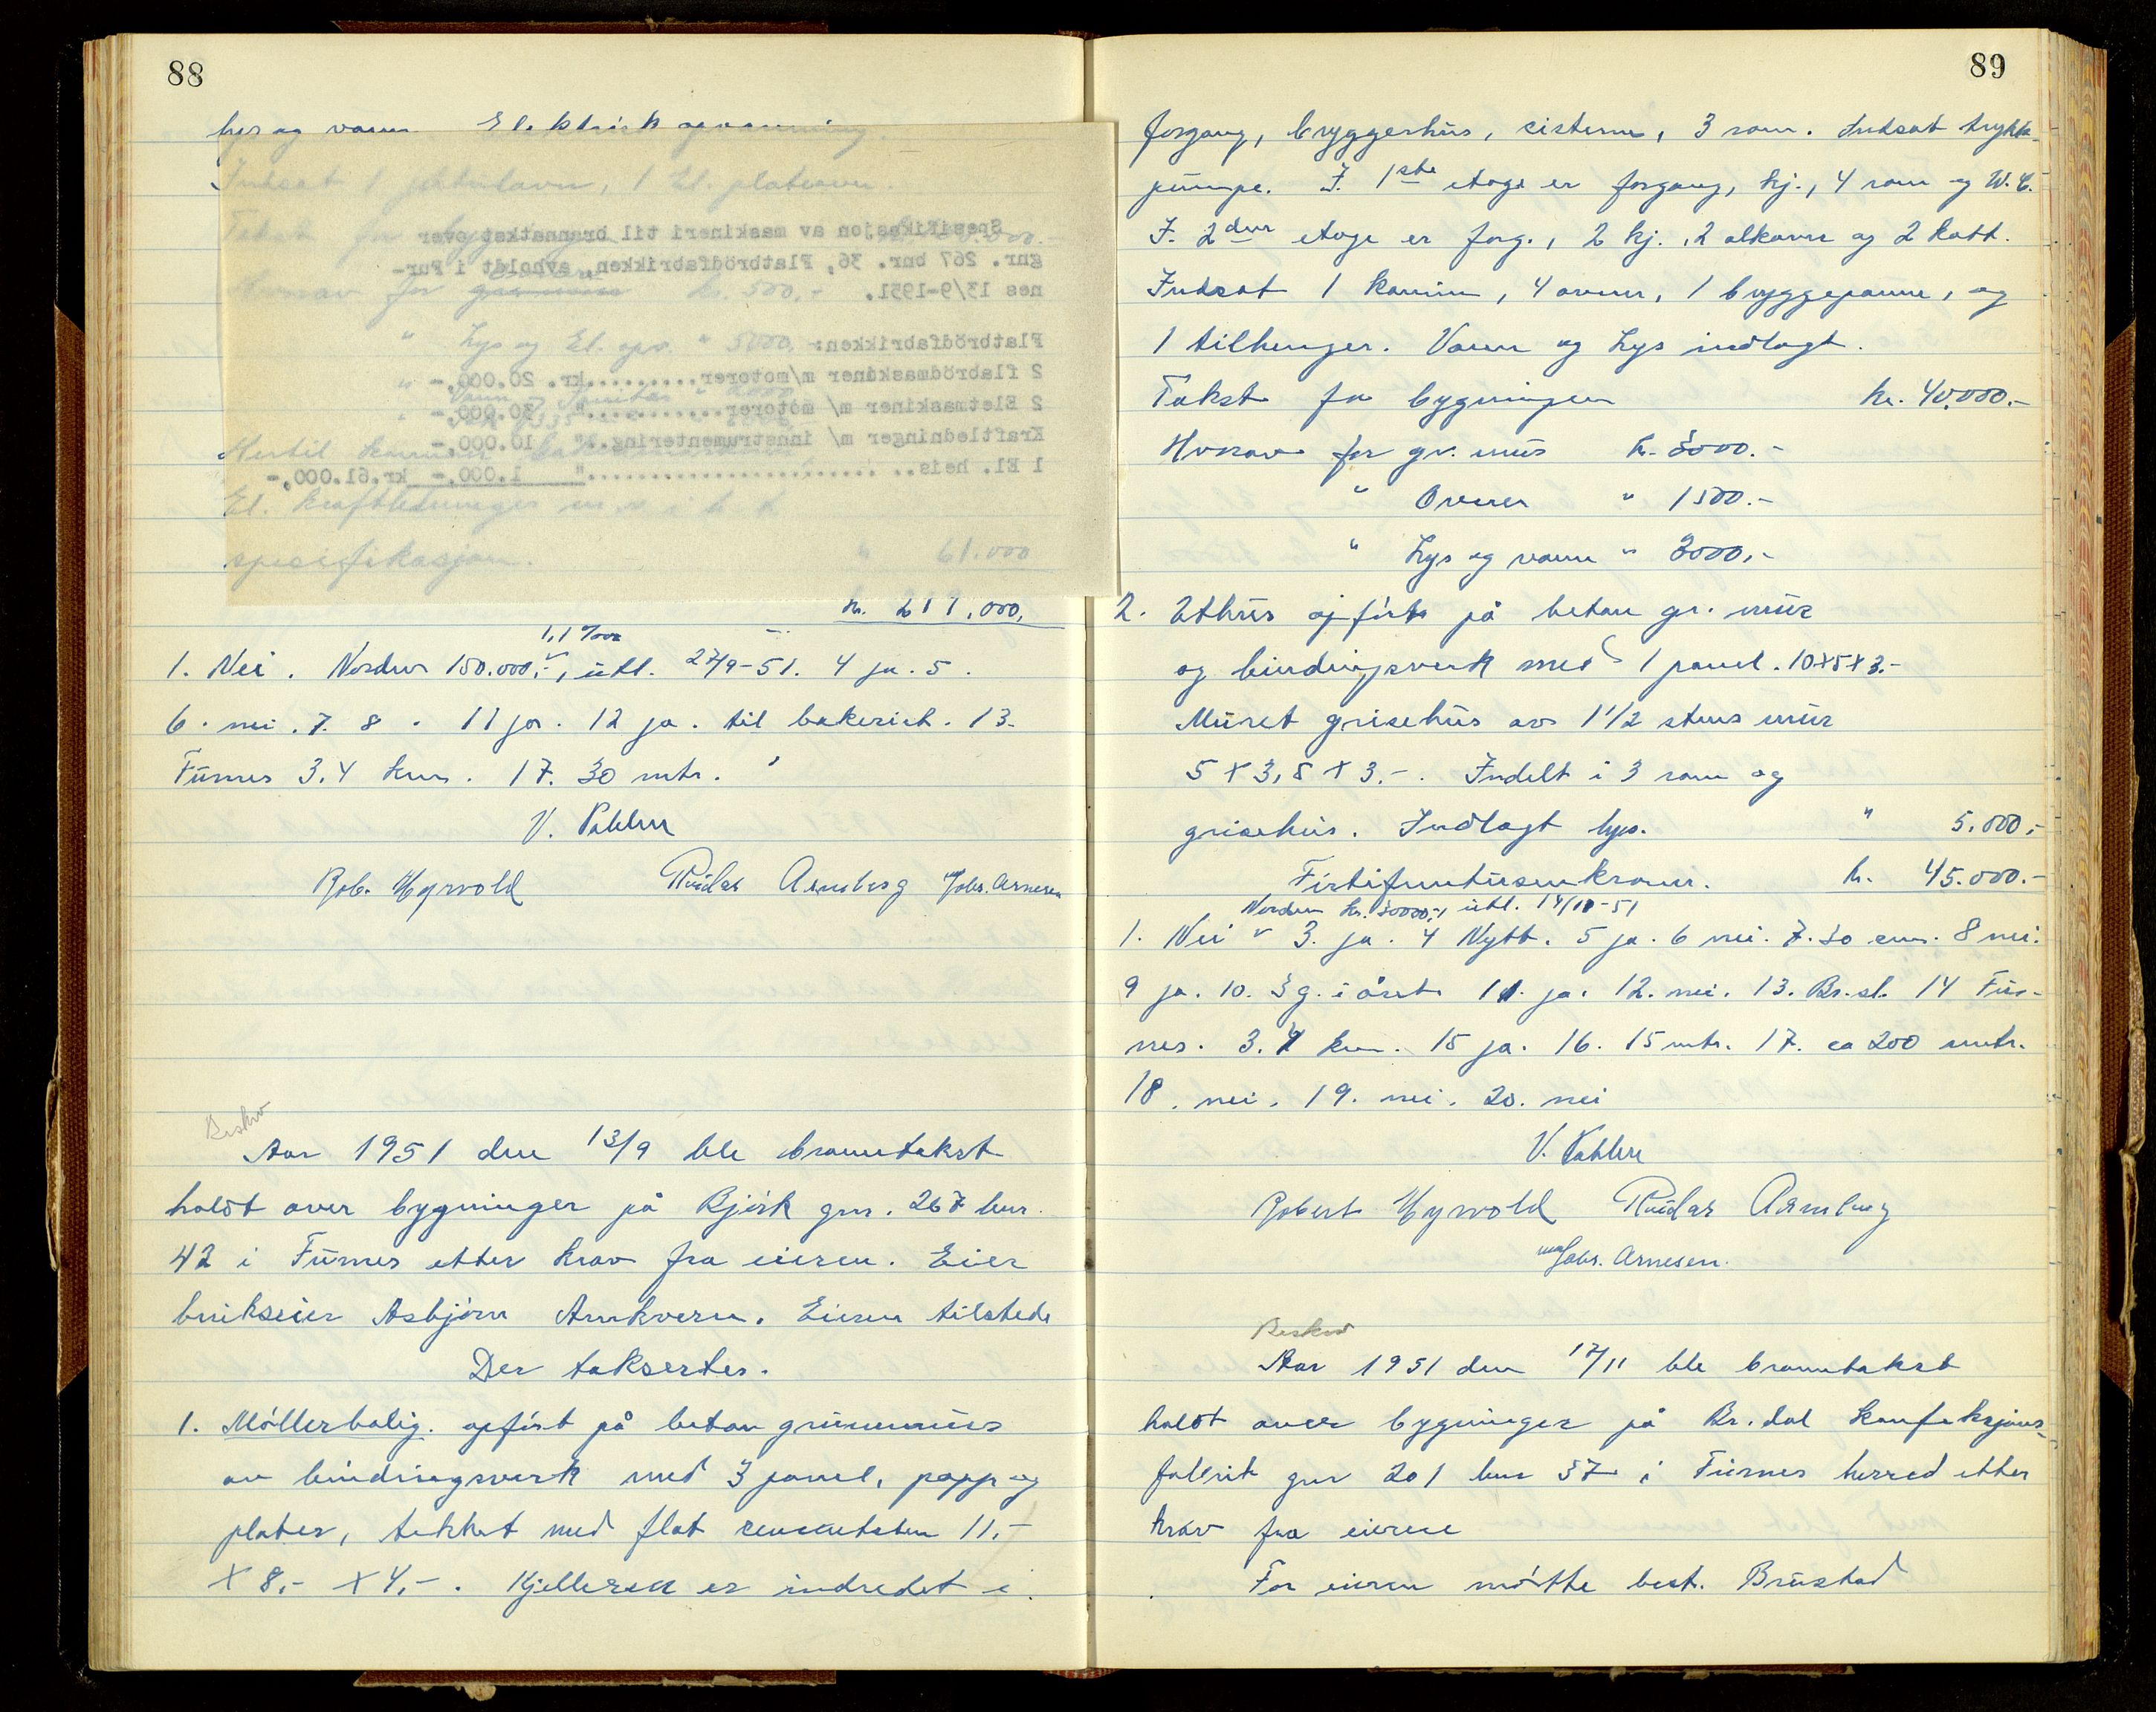 88
lys og vann Elektrisk opvarming.
Indsat 1 , 1 El. plateovn.
Takst for
Spesifikasjon av maskineri til branntakst over
gnr. 267 bnr. 36, Flatbrödfabrikken, avholdt i Fur-
nes 13/9-1951.
Hvorav for kr. 500.-
" Lys og El. opv. " 5000.
Flatbrödfabrikken:
2 flabrödmaskiner m/motorer.........kr. 20.000,-
" Vann
2 Eletmaskiner m/ motorer..........." 30.000,-
Kraftledninger m/ innstrumentering.." 10.000,-
Hertil kommer
1 El. heis.. ......................." 1.000,- kr.61.000,-
El. kraftledninger
spesifikasjon. " 61.000
kr. 219.000,
1,1 %oo
1. Nei. Norden 150.000.-, utl. 27/9-51. 4 ja. 5.
6. nei. 7. 8. 11 ja. 12 ja. til bakeriet. 13.
Furnes 3.4 km. 17. 30 mtr.
V. Pahlen
Rob. Hyrvold Reidar Arnsberg Johs. Arnesen
Beskr
Aar 1951 den 13/9 ble branntakst
holdt over bygninger på Bjørk gnr. 267 bnr.
42 i Furnes etter krav fra eieren. Eier
brukseier Asbjørn Arnkvern. Eieren tilstede
Der taksertes.
1. Møllerbolig. opført på betong grunnmur
av bindingsverk med 3 panel, papp og
plater, tekket med flat sementsten 11.-
x 8,- x 4,-. Kjelleren er indredet i
89
forgang, bryggerhus, cisterne, 3 rom. Indsat trykk-
pumpe. I. 1ste etage er forgang, kj., 4 rom og W.C.
I. 2den etage er forg., 2 kj., 2 alkover og 2 kott.
Indsat 1 kamin, 4 ovner, 1 bryggepanne, og
1 tilhenger. Vann og Lys indlagt.
Takst for bygningen kr. 40.000.-
Hvorav for gr. mur kr. 5000.-
" Ovner " 1500.-
" Lys og vann " 3000,-
2. Uthus opført på betong gr. mur
og bindingsverk med 1 panel. 10x5x3.-
Muret grisehus av 1 1/2 stens mur
5 x 3,5 x 3.-. Indelt i 3 rom og
grisehus. Indlagt lys. " 5.000,-
Førtifemtusenkroner. kr. 45.000.-
Norden kr. 30000,- utl. 14/11-51
1. Nei 3. ja. 4 Nytt. 5 ja. 6 nei. 7. 30 cm. 8 nei.
9 ja. 10. 3 g. i året 11. ja. 12. nei. 13. Br.sl. 14 Fur-
nes. 3.4 km. 15 ja. 16. 15 mtr. 17. ca 200 mtr.
18. nei. 19. nei. 20. nei
V. Pahlen
Robert Hyrvold Reidar Arnsberg
Johs. Arnesen.
Beskrev
Aar 1951 den 17/11 ble branntakst
holdt over bygninger på Br.dal konfeksjons-
fabrik gnr 201 bnr 57 i Furnes herred etter
krav fra eierne
For eieren møtte best. Brustad